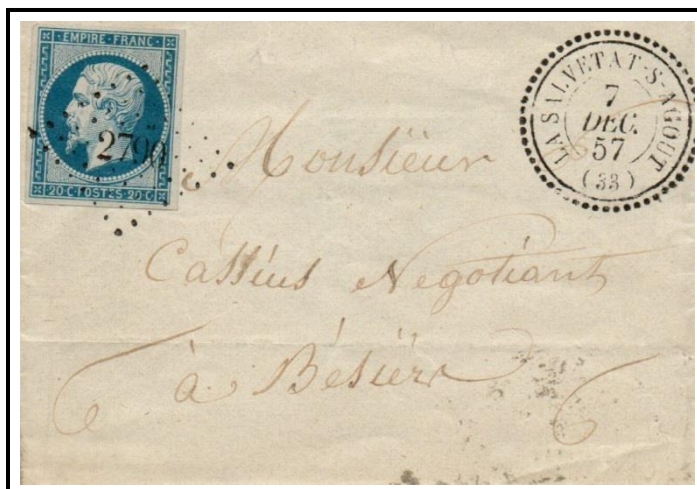 EMPIRE FRANC
2790
20 C POSTES 20 C
LA SALVETAT-S-AGOUT
7
DEC.
57
(33)
Monsieur
Cassius Negotiant
à Bésiers